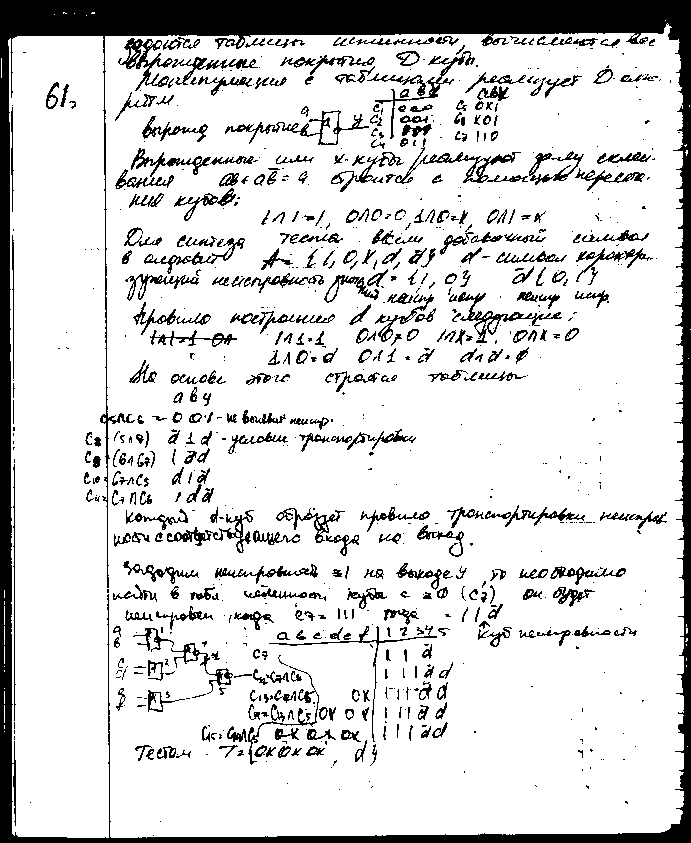 задаются таблицы истинности, вычисляются все
вырожденные покрытия D-кубы.
Манипуляция с таблицами реализует D-алго-
ритм.
61.
a b y a b y
C1 000 C5 0X1
C2 001 C6 X01
C3 C7 110
C4 011
вырожд покрытие y
Вырожденные или x-кубы реализуют
вания ab+ab̄=a. строится с помощью пересече-
ния кубов:
1∩1=1, 0∩0=0, 1∩0=x, 0∩1=x
Для синтеза теста ввели добавочный символ
в алфавит A={1,0,x,d,d̄} d - символ характери-
зующий неисправность d={1,0} d̄{0,1}
неиспр испр. неиспр испр.
Правило построения d кубов следующие:
1∩1=1 0∩0=0 1∩x=1. 0∩x=0
1∩0=d 0∩1=d̄ d∩d̄=ø
На основе этого строятся таблицы
a b y
C5∩C6 = 0 0 1 - не выявит неиспр.
C8 (5∩7) d̄ 1 d - условие транспортировки
C9 (6∩C7) 1 d̄ d
C10=C7∩C5 d 1 d̄
C11=C7∩C6 1 d d̄
Каждый d-куб образует правило транспортировки неисправ
ности соответствующего входа на выход.
Зададим неисправность ≡1 на выходе y, то необходимо
найти в табл. истинности куба с ≡0 (C7) он будет
неисправен, когда C7=111 тогда =11d̄
a b c d e f 1 2 3 4 5 Куб неисправности
C7 1 1 d̄
1 1 1 d̄ d
0X 1 1 1 d̄ d
0X 0X 1 1 1 d̄ d
0X 0X 0X 1 1 1 d̄ d
Тестом T={0X 0X 0X, d}